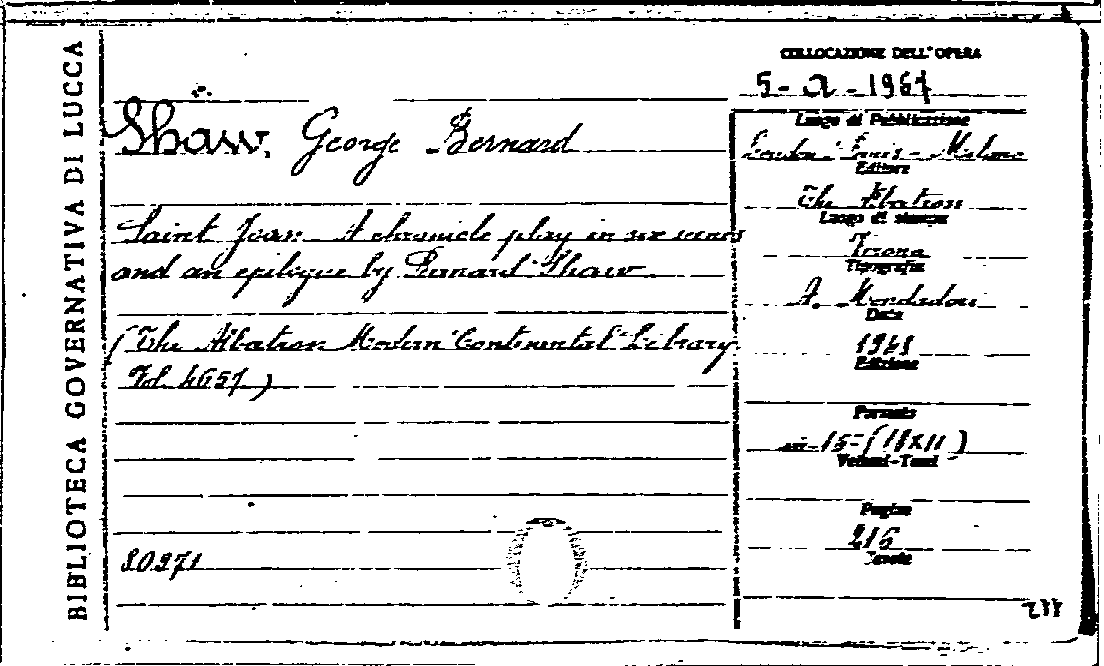 BIBLIOTECA GOVERNATIVA DI LUCCA
COLLOCAZIONE DELL'OPERA
5-a-1967
Shaw, George Bernard
Luogo di Pubblicazione
London-Paris-Milano
Editore
The Albatross
Luogo di stampa
Verona
Tipografia
A. Mondadori
Data
Edizione
Formato
in-15-(18x11)
Volumi-Tomi
Pagine
216
Tavole
Saint Joan. A chronicle play in six scenes
and an epilogue by Bernard Shaw
(The Albatross Modern Continental Library
Vol. 4657)
80271